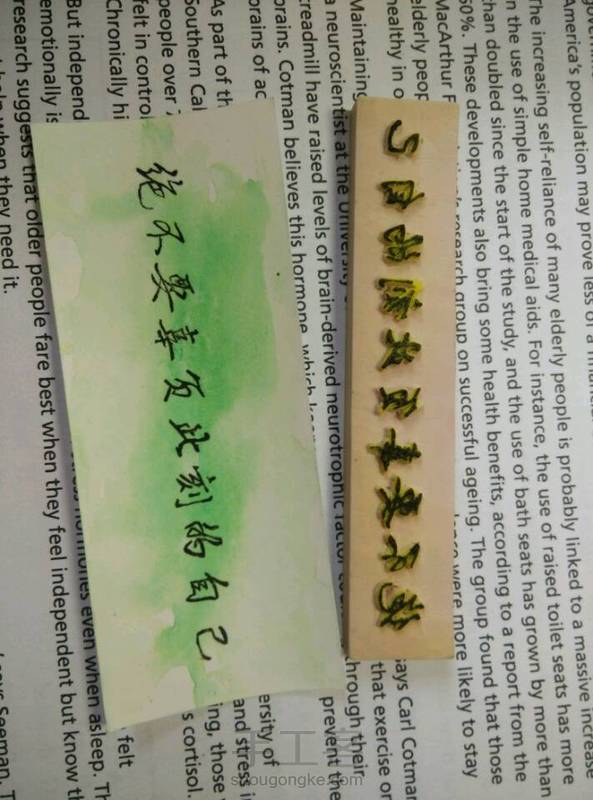 America's population may prove less of a
The increasing self-reliance of many elderly people is probably linked to a massive increase
in the use of simple home medical aids. For instance, the use of raised toilet seats has more
than doubled since the start of the study, and the use of bath seats has grown by more than
50%. These developments also bring some health benefits, according to a report from the
MacArthur research group on successful ageing. The group found that those
elderly were more likely to stay
healthy in
Maintaining says Carl Cotman
a neuroscientist at the University that exercise on
treadmill have raised levels of brain-derived neurotrophic factor through their
brains. Cotman believes this hormone, which prevent the
brains of
As part of
Southern and stress
people over those
felt in control cortisol.
Chronically hormones even when asleep.
But felt
emotionally
research suggests that older people fare best when they feel independent but know
help when they need it.
Seeman,
绝不要辜负此刻的自己
绝不要辜负此刻的自己
手工客
shougongke.com